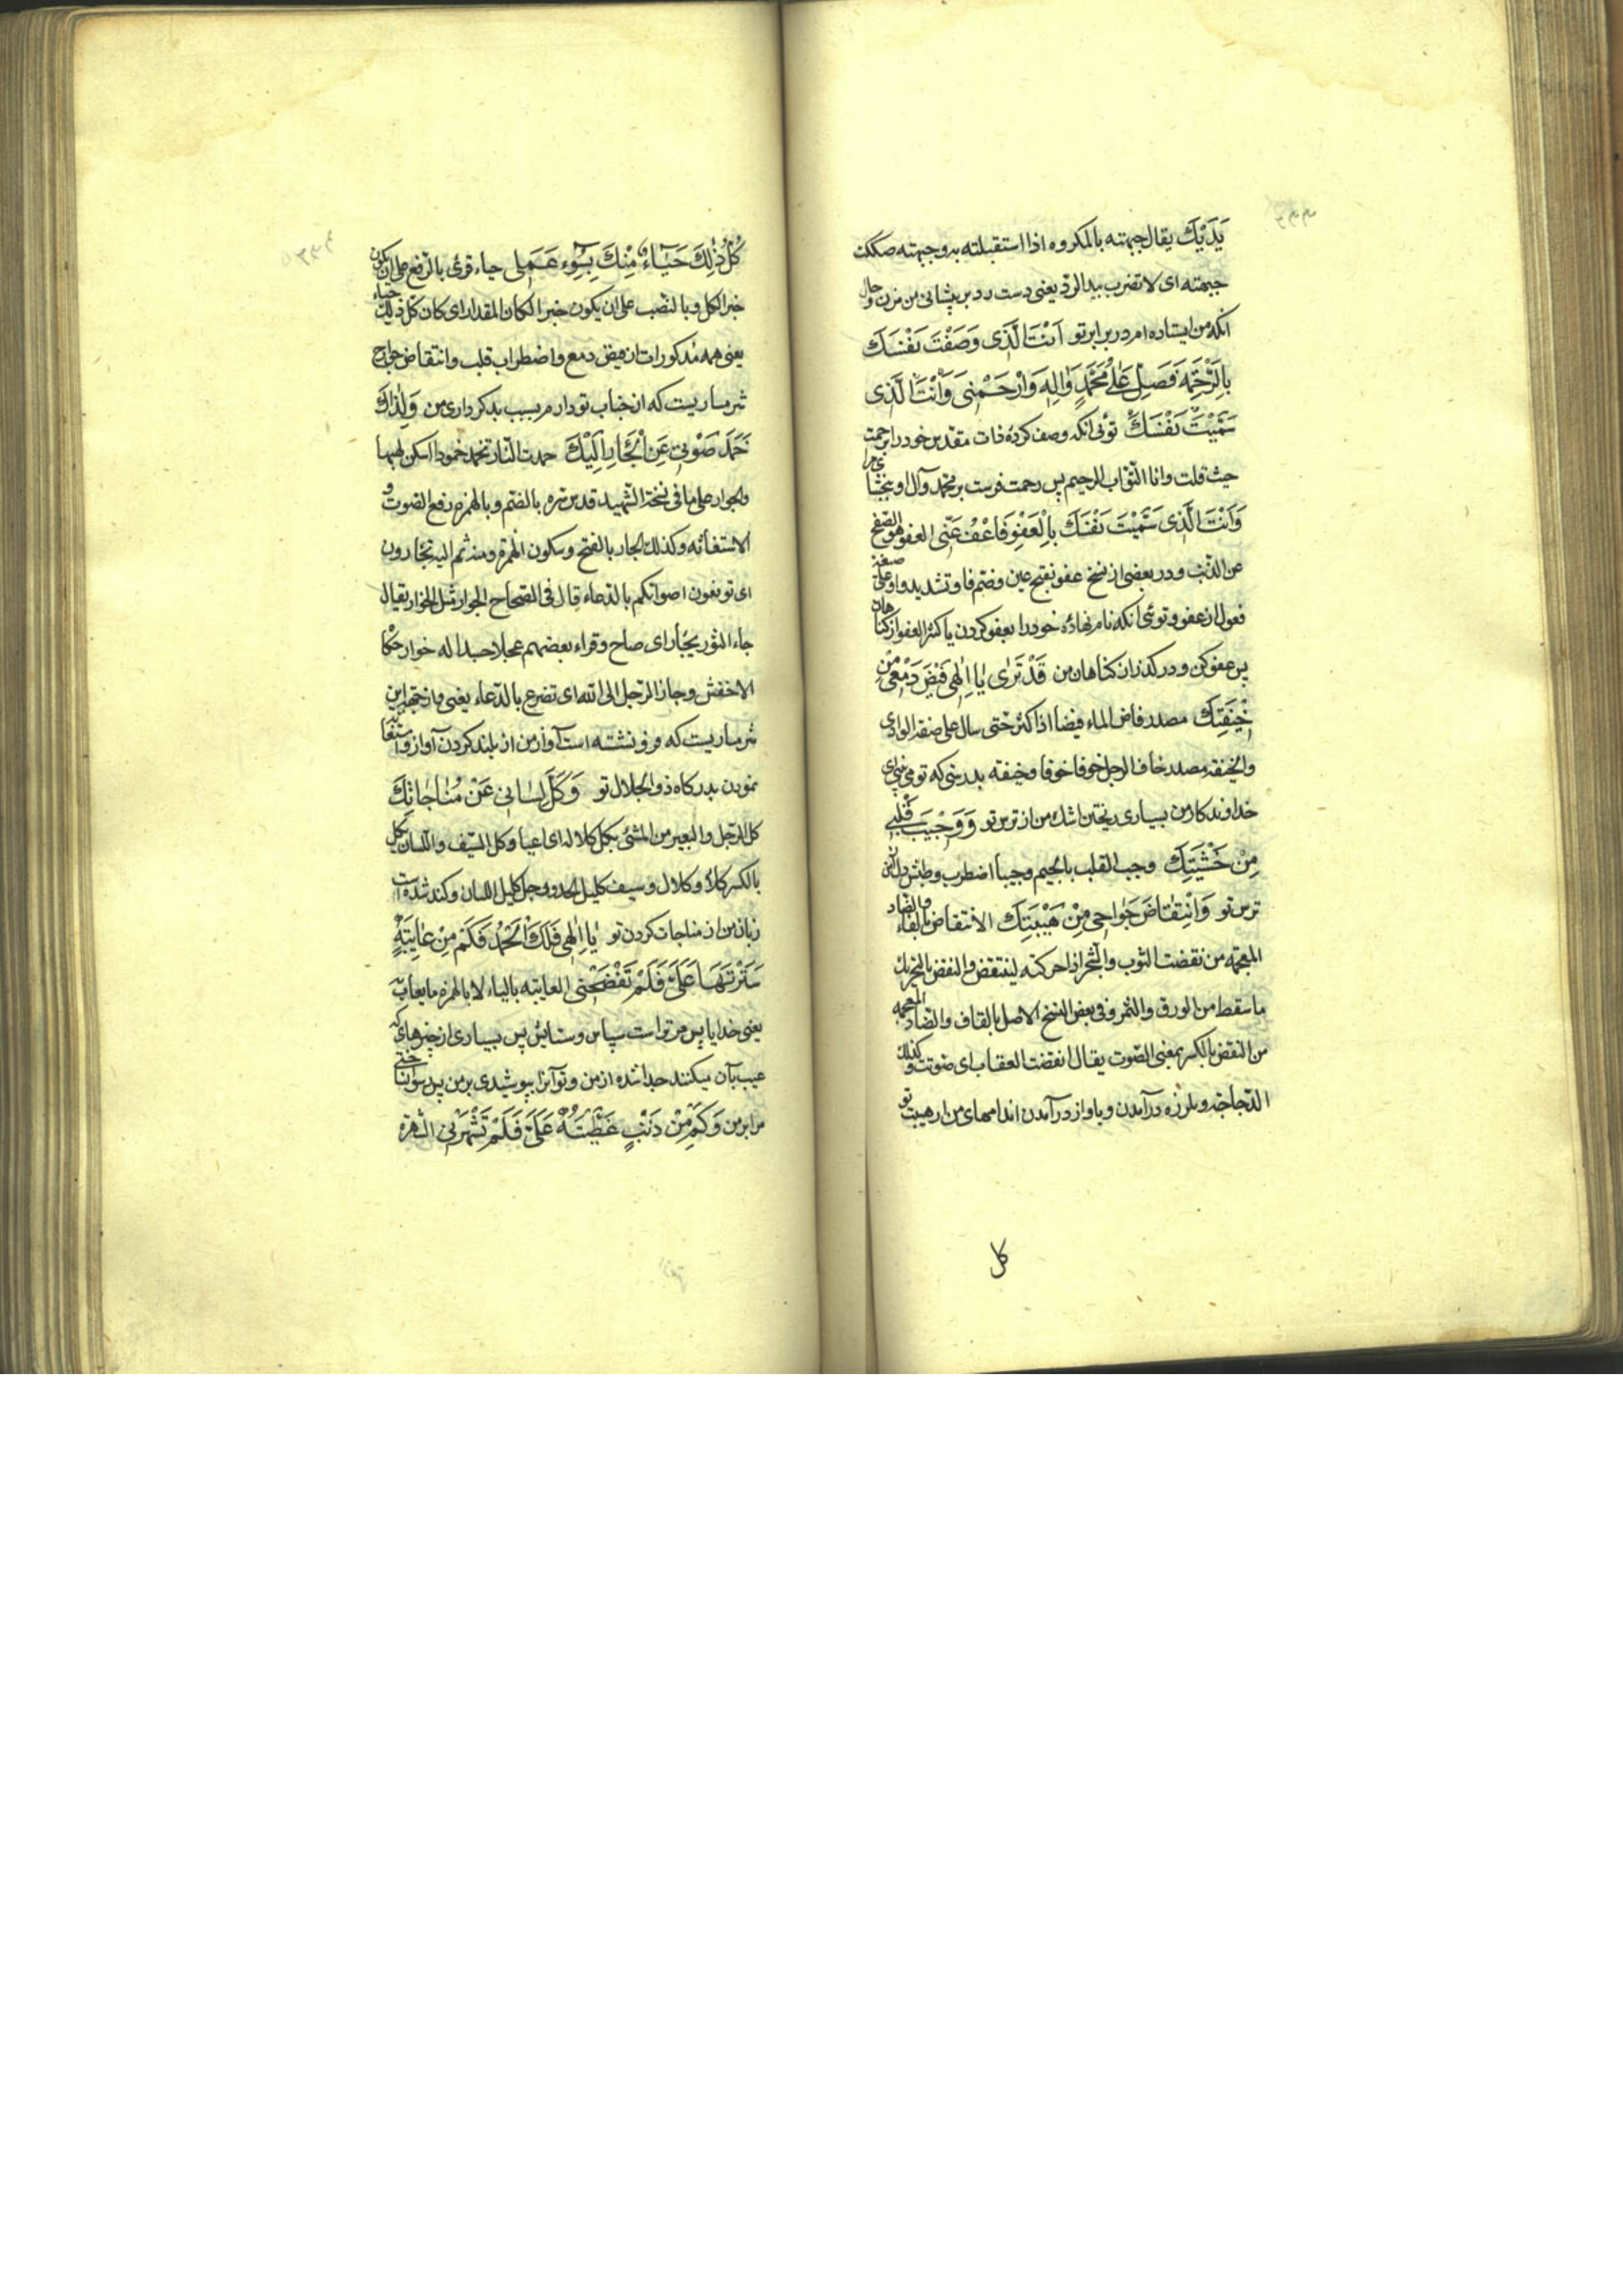 يَدَيْكَ يقال جبهته بالمكروه اذا استقبلته به وجبهته صككت
جبهته ای لا تضرب بيد الرد يعنی دست رد بر پيشانی من مزن و حال
آنکه من ايستاده ام در برابر تو اَنْتَ الَّذی وَصَفْتَ نَفْسَكَ
بِالرَّحْمَةِ فَصَلِّ عَلٰی مُحَمَّدٍ وَاٰلِهِ وَارْحَمْنِی وَاَنْتَ الَّذی
سَمَّيْتَ نَفْسَكَ توئی آنکه وصف کرده ذات مقدس خود را برحمت
حيث قلت وانا التوّاب الرحيم پس رحمت فرست بر محمد وآل او وببخشای مرا
وَاَنْتَ الَّذی سَمَّيْتَ نَفْسَكَ بِالْعَفْوِ فَاعْفُ عَنِّی العفو هو الصفح
عن الذنب و در بعضی از نسخ عفو بفتح عين وضم فا وتشديد واو علی صيغة
فعول از عفو و توئی آنکه نام نهاده خود را بعفو کردن يا کثير العفو از گناهان
پس عفو کن و درگذر از گناهان من قَدْ تَرٰی يٰا اِلٰهِی فَيْضَ دَمْعی مِنْ
خِيفَتِكَ مصدر فاض الماء فيضا اذا کثر حتی سال علی ضفة الوادی
والخيفة مصدر خاف الرجل خوفا وخيفة بدرستی که تو می بينی ای
خداوندگار من بسياری ريختن اشك من از ترس تو وَوَجِيبَ قَلْبی
مِنْ خَشْيَتِكَ وجب القلب بالجيم وجيباً اضطرب وطپش دل من از
ترس تو وَانْتِقٰاضَ جَوٰارِحی مِنْ هَيْبَتِكَ الانتفاض بالفاء والضاد
المعجمة من نفضت الثوب والشجر اذا حرکته لينتفض والنفض بالتحريك
ما سقط من الورق والثمر وفی بعض النسخ الاصل بالقاف والضاد المعجمة
من النقض بالکسر بمعنی الصوت يقال انقضت العقاب ای صوتت وکذلك
الدجاجة و بلرزه درآمدن و باواز درآمدن اندامهای من از هيبت تو
کل
كُلُّ ذٰلِكَ حَيٰاءً مِنْكَ بِسُوءِ عَمَلی حياء قرئ بالرفع علی ان يکون
خبر الکل وبالنصب علی ان يکون خبرا لکان المقدر ای کان کل ذلك حياء
يعنی همه مذکورات از فيض دمع واضطراب قلب وانتقاض جوارح
شرمساريست که از جناب تو دارم بسبب بدکرداری من وَلِذٰاكَ
خَمَدَ صَوْتی عَنِ الْجَأْرِ اِلَيْكَ خمدت النار تخمد خمودا اسکن لهبها
والجوار علی ما فی نسخة الشهيد قدس سره بالضم وبالهمزه رفع الصوت و
الاستغاثه وکذلك الجأر بالفتح وسکون الهمزة ومنه ثم اليه تجأرون
ای ترفعون اصواتکم بالدعاء قال فی الصحاح الجوار مثل الخوار يقال
جاء الثور يجأر ای صاح وقراء بعضهم عجلا جسدا له خوار حکاه
الاخفش وجأر الرجل الی الله ای تضرع بالدعاء يعنی و از جهة اين
شرمساريست که فرو نشسته است آواز من از بلند کردن آواز و استغاثه
نمودن بدرگاه ذو الجلال تو وَكَلَّ لِسٰانی عَنْ مُنٰاجٰاتِكَ
کل الرجل والبعير من المشی يکل کلالا ای اعيا وکل السيف واللسان يکل
بالکسر کلاً وکلال وسيف کليل الحد ورجل کليل اللسان وکند شده است
زبان من از مناجات کردن تو يٰا اِلٰهی فَلَكَ الْحَمْدُ فَكَمْ مِنْ عٰايِبَةٍ
سَتَرْتَهٰا عَلَیَّ فَلَمْ تَفْضَحْنی العايبه بالياء لا بالهمزه ما يعاب
يعنی خدايا پس مر تو راست سپاس و ستايش پس بسياری از چيزهای که
عيب بآن ميکنند صدا شده از من و تو آنرا بپوشيدی بر من پس رسوا نساختی
مرا بر من وَكَمْ مِنْ ذَنْبٍ غَطَّيْتَهُ عَلَیَّ فَلَمْ تَشْهَرْنی الشهرة